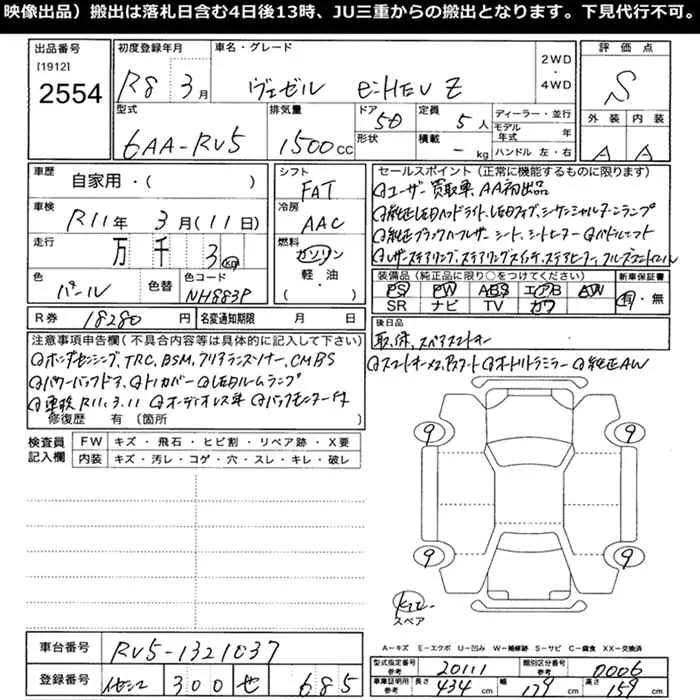 映像出品）搬出は落札日含む4日後13時、JU三重からの搬出となります。下見代行不可。
出品番号 初度登録年月 車名・グレード 評価点
[1912]
2554 R8年 3月 ヴェゼル e:HEV Z 2WD・4WD S
型式 排気量 ドア 5D 定員 5人 ディーラー・並行 外装 内装
6AA-RV5 1500cc 形状 積載 - kg モデル年式 年 ハンドル 左・右 A A
車歴 自家用・( ) シフト FAT セールスポイント（正常に機能するものに限ります）
車検 R11年 3月(11日) 冷房 AAC ユーザー買取車 AA初出品
純正LEDヘッドライト、LEDフォグ、シーケンシャルターンランプ
走行 万 千 3 km 燃料 ガソリン 軽・油 ( ) 純正ブラックハーフレザーシート、シートヒーター パドルシフト
レザーステアリング、ステアリングスイッチ、ステアヒーター、
色 パール 色替 色コード NH883P 装備品（純正品に限り○をつけてください） 新車保証書
PS PW ABS エアB AW 有・無
SR ナビ TV カワ
R券 18280円 名変通知期限 月 / 日 後日品
取、保、スペアスマートキー
注意事項申告欄(不具合内容等は具体的に記入して下さい) スマートキー×2 オートリトラミラー 純正AW
ホンダセンシング、TRC、BSM、クリアランスソナー、CMBS
パワーバックドア、トノカバー LEDルームランプ
車検R11.3.11 オーディオレス車 バックモニター付
修復歴 有 〔箇所 〕
検査員記入欄 FW キズ・飛石・ヒビ割・リペア跡・X要
内装 キズ・汚レ・コゲ・穴・スレ・キレ・破レ
9 9
9 9
キズ
スペア
A―キズ E―エクボ U―凹み W―補修跡 S―サビ C―腐食 XX―交換済
車台番号 RV5-1321037
型式指定番号 参考 20111 類別区分番号 参考 0006
登録番号 300 せ 685
車庫証明用 参考 長さ 434cm 幅 179cm 高さ 159cm